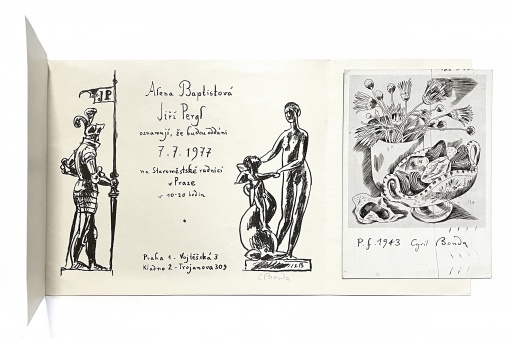 JP
Alena Baptistová
Jiří Pergl
oznamují, že budou oddáni
7.7.1977
na Staroměstské radnici
v Praze
v 10.20 hodin
Praha 1 - Vojtěšská 3
Kladno 2 - Trojanova 309
C Bouda
P.f. 1943 Cyril Bouda